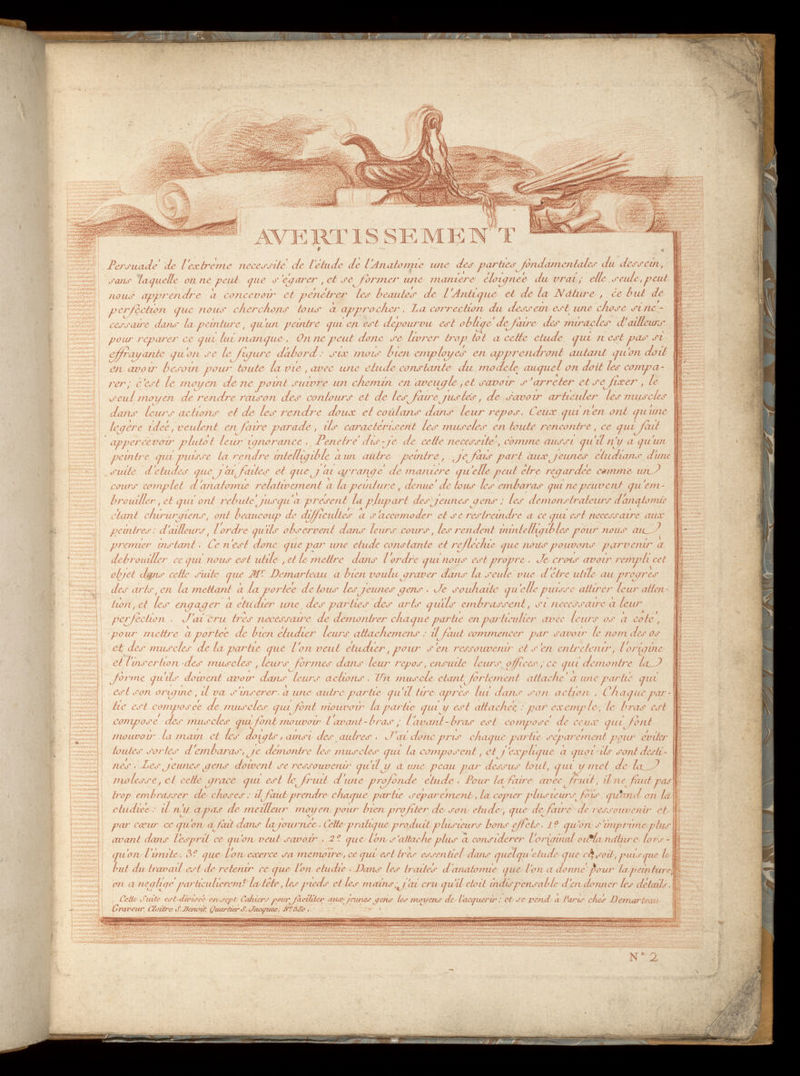 AVERTISSEMENT
Persuadé de l'extrême necessité de l'étude de l'Anatomie une des parties fondamentales du dessein,
sans laquelle on ne peut que s'égarer, et se former une manière éloignée du vrai; elle seule, peut
nous apprendre a concevoir et pénétrer les beautés de l'Antique et de la Nature, ce but de
perfection que nous cherchons tous à approcher. La correction du dessein est une chose si né-
cessaire dans la peinture, qu'un peintre qui en est dépourvu est obligé de faire des miracles d'ailleurs
pour reparer ce qui lui manque. On ne peut donc se livrer trop tôt a cette etude qui n'est pas si
effrayante qu'on se le figure d'abord: six mois bien employés en apprendront autant qu'on doit
en avoir besoin pour toute la vie, avec une etude constante du modele auquel on doit les compa-
rer; c'est le moyen de ne point suivre un chemin en aveugle, et savoir s'arrêter et se fixer, le
seul moyen de rendre raison des contours et de les faire justes, de savoir articuler les muscles
dans leurs actions et de les rendre doux et coulans dans leur repos. Ceux qui n'en ont qu'une
legère idée, veulent en faire parade, ils caractérisent les muscles en toute rencontre, ce qui fait
appercevoir plutôt leur ignorance. Penetré dis-je de cette necessité, comme aussi qu'il n'y a qu'un
peintre qui puisse la rendre intelligible à un autre peintre, je fais part aux jeunes étudians d'une
suite d'études que j'ai faites et que j'ai arrangé de manière qu'elle peut être regardée comme un
cours complet d'anatomie relativement à la peinture, denué de tous les embaras qui ne peuvent qu'em-
brouiller, et qui ont rebuté jusqu'à présent la plupart des jeunes gens: les demonstrateurs d'anatomie
étant chirurgiens, ont beaucoup de difficultés à s'accomoder et se restreindre a ce qui est necessaire aux
peintres: d'ailleurs, l'ordre qu'ils observent dans leurs cours, les rendent inintelligibles pour nous au
premier instant. Ce n'est donc que par une etude constante et refléchie que nous pouvons parvenir à
debrouiller ce qui nous est utile, et le mettre dans l'ordre qui nous est propre. Je crois avoir rempli cet
objet dans cette suite que Mr. Demarteau a bien voulu graver dans la seule vue d'être utile au progrès
des arts, en la mettant à la portée de tous les jeunes gens. Je souhaite qu'elle puisse attirer leur atten-
tion, et les engager à étudier une des parties des arts qu'ils embrassent, si necessaire à leur
perfection. J'ai cru très necessaire de demontrer chaque partie en particulier avec leurs os à côté,
pour mettre à portée de bien étudier leurs attachemens: il faut commencer par savoir le nom des os
et des muscles de la partie que l'on veut étudier, pour s'en ressouvenir et s'en entretenir, l'origine
et l'insertion des muscles, leurs formes dans leur repos, ensuite leurs offices; ce qui démontre la
forme qu'ils doivent avoir dans leurs actions. Un muscle étant fortement attaché à une partie qui
est son origine, il va s'inserer à une autre partie qu'il tire après lui dans son action. Chaque par-
tie est composée de muscles qui font mouvoir la partie qui y est attachée: par exemple, le bras est
composé des muscles qui font mouvoir l'avant-bras; l'avant-bras est composé de ceux qui font
mouvoir la main et les doigts, ainsi des autres. J'ai donc pris chaque partie séparément pour éviter
toutes sortes d'embaras, je démontre les muscles qui la composent, et j'explique à quoi ils sont desti-
nés. Les jeunes gens doivent se ressouvenir qu'il y a une peau par dessus tout, qui y met de la
molesse, et cette grace qui est le fruit d'une profonde étude. Pour la faire avec fruit, il ne faut pas
trop embrasser de choses: il faut prendre chaque partie séparément, la copier plusieurs fois quand on la
etudiée: il n'y a pas de meilleur moyen pour bien profiter de son etude, que de faire de ressouvenir et
par cœur ce qu'on a fait dans la journée. Cette pratique produit plusieurs bons effets. 1º qu'on s'imprime plus
avant dans l'esprit ce qu'on veut savoir. 2º que l'on s'attache plus à considérer l'original ou la nature lors-
qu'on l'imite. 3º que l'on exerce sa memoire, ce qui est très essentiel dans quelqu'etude que ce soit, puisque le
but du travail est de retenir ce que l'on etudie. Dans les traités d'anatomie que l'on a donné pour la peinture,
on a negligé particulieremt la tête, les pieds et les mains, j'ai cru qu'il étoit indispensable d'en donner les détails.
Cette Suite est divisée en sept Cahiers pour faciliter aux jeunes gens les moyens de l'acquerir: et se vend à Paris chés Demarteau
Graveur Cloitre S. Benoit, Quartier S. Jacques.
N° 2